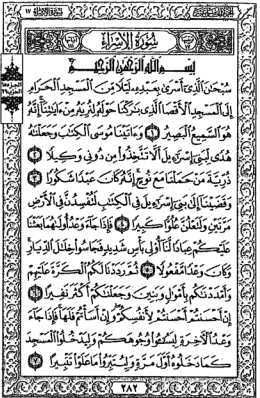 سُورَةُ الإِسْرَاءِ
بِسْمِ اللَّهِ الرَّحْمَٰنِ الرَّحِيمِ
سُبْحَٰنَ الَّذِي أَسْرَىٰ بِعَبْدِهِ لَيْلًا مِّنَ الْمَسْجِدِ الْحَرَامِ
إِلَى الْمَسْجِدِ الْأَقْصَا الَّذِي بَٰرَكْنَا حَوْلَهُ لِنُرِيَهُ مِنْ ءَايَٰتِنَا إِنَّهُ
هُوَ السَّمِيعُ الْبَصِيرُ ١ وَءَاتَيْنَا مُوسَى الْكِتَٰبَ وَجَعَلْنَٰهُ
هُدًى لِّبَنِي إِسْرَٰءِيلَ أَلَّا تَتَّخِذُوا مِن دُونِي وَكِيلًا ٢
ذُرِّيَّةَ مَنْ حَمَلْنَا مَعَ نُوحٍ إِنَّهُ كَانَ عَبْدًا شَكُورًا ٣
وَقَضَيْنَا إِلَىٰ بَنِي إِسْرَٰءِيلَ فِي الْكِتَٰبِ لَتُفْسِدُنَّ فِي الْأَرْضِ
مَرَّتَيْنِ وَلَتَعْلُنَّ عُلُوًّا كَبِيرًا ٤ فَإِذَا جَاءَ وَعْدُ أُولَىٰهُمَا بَعَثْنَا
عَلَيْكُمْ عِبَادًا لَّنَا أُولِي بَأْسٍ شَدِيدٍ فَجَاسُوا خِلَٰلَ الدِّيَارِ
وَكَانَ وَعْدًا مَّفْعُولًا ٥ ثُمَّ رَدَدْنَا لَكُمُ الْكَرَّةَ عَلَيْهِمْ
وَأَمْدَدْنَٰكُم بِأَمْوَٰلٍ وَبَنِينَ وَجَعَلْنَٰكُمْ أَكْثَرَ نَفِيرًا ٦
إِنْ أَحْسَنتُمْ أَحْسَنتُمْ لِأَنفُسِكُمْ وَإِنْ أَسَأْتُمْ فَلَهَا فَإِذَا جَاءَ
وَعْدُ الْءَاخِرَةِ لِيَسُـُٔوا وُجُوهَكُمْ وَلِيَدْخُلُوا الْمَسْجِدَ
كَمَا دَخَلُوهُ أَوَّلَ مَرَّةٍ وَلِيُتَبِّرُوا مَا عَلَوْا تَتْبِيرًا ٧
٢٨٢